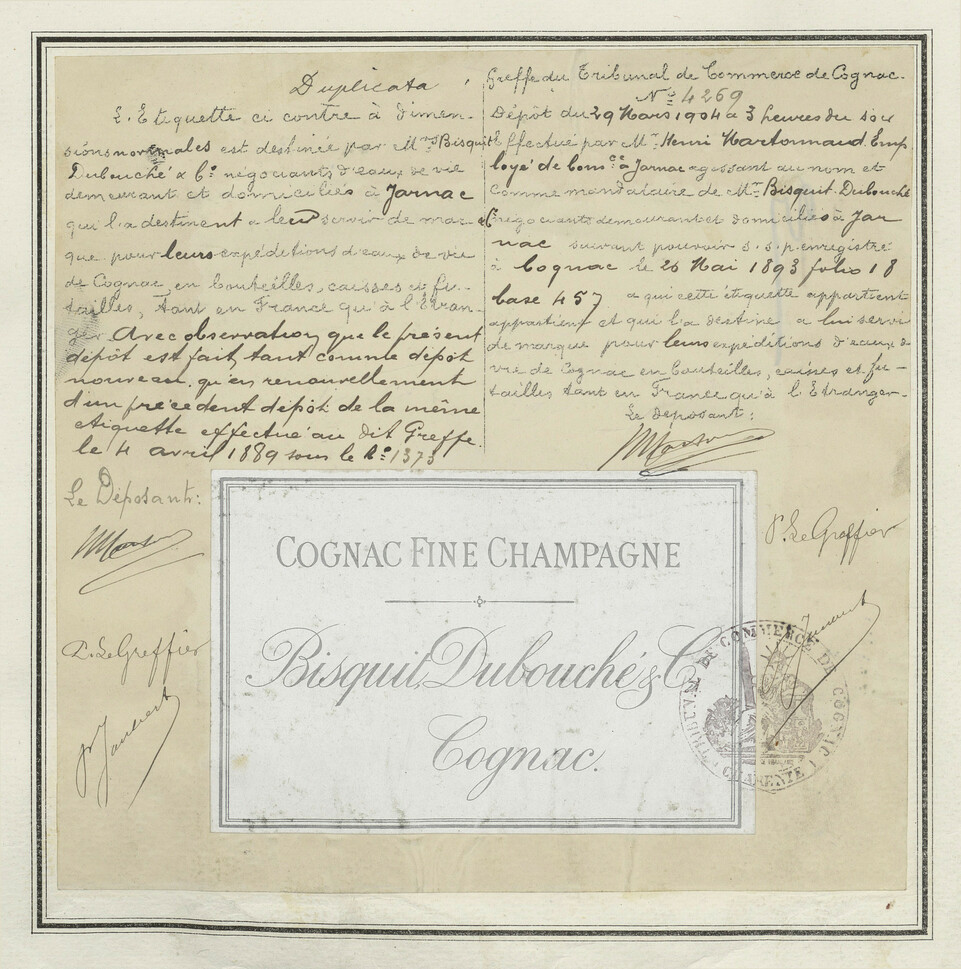 Duplicata
L'Etiquette ci contre à dimen-
sions normales est destinée par Mrs Bisquit
Dubouché & Cie négociants d'eaux de vie
demeurant et domiciliés à Jarnac
qui la destinent a leur servir de mar-
que pour leurs expéditions d'eaux de vie
de Cognac, en bouteilles, caisses et fu-
tailles, tant en France qu'à l'Etran-
ger. Avec observation que le présent
dépôt est fait, tant comme dépôt
nouveau, qu'en renouvellement
d'un précédent dépôt de la même
etiquette effectué au dit Greffe.
le 4 avril 1889 sous le No 1373
Le Déposant:
P. Le Greffier
Greffe du Tribunal de Commerce de Cognac.
No 4269
Dépôt du 29 Mars 1904 a 3 heures du soir
Effectué par Mr Henri Martonnaud Emp
loyé de comce à Jarnac agissant au nom et
comme mandataire de Mrs Bisquit Dubouché
& Cie négociants demeurant et domiciliés à Jar
nac suivant pouvoir s.s.p. enregistré
à Cognac le 26 Mai 1893 folio 18
case 457 a qui cette étiquette appartient
appartient et qui l'a destine a lui servi
de marque pour leurs expéditions d'eaux de
vie de Cognac en bouteilles, caisses et fu-
tailles tant en France qu'à l'Etranger-
Le déposant:
P. Le Greffier
COGNAC FINE CHAMPAGNE
Bisquit, Dubouché & Co
Cognac.
TRIBUNAL DE COMMERCE DE COGNAC
CHARENTE